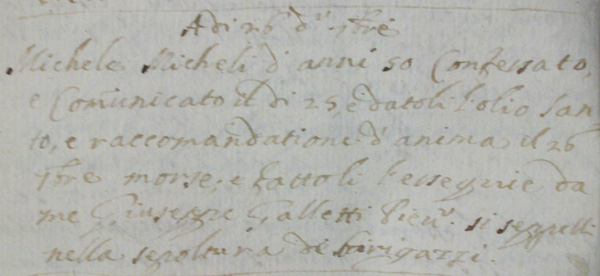 Adi 26 d.º 9bre
Michele Micheli d'anni 50 Confessato,
e Comunicato il di 25, e datoli l'olio San-
to, e raccomandatione d'anima il 26
9bre morse; e fattoli l'essequie da
me Giuseppe Galletti Piev.º si seppellì
nella sepoltura de